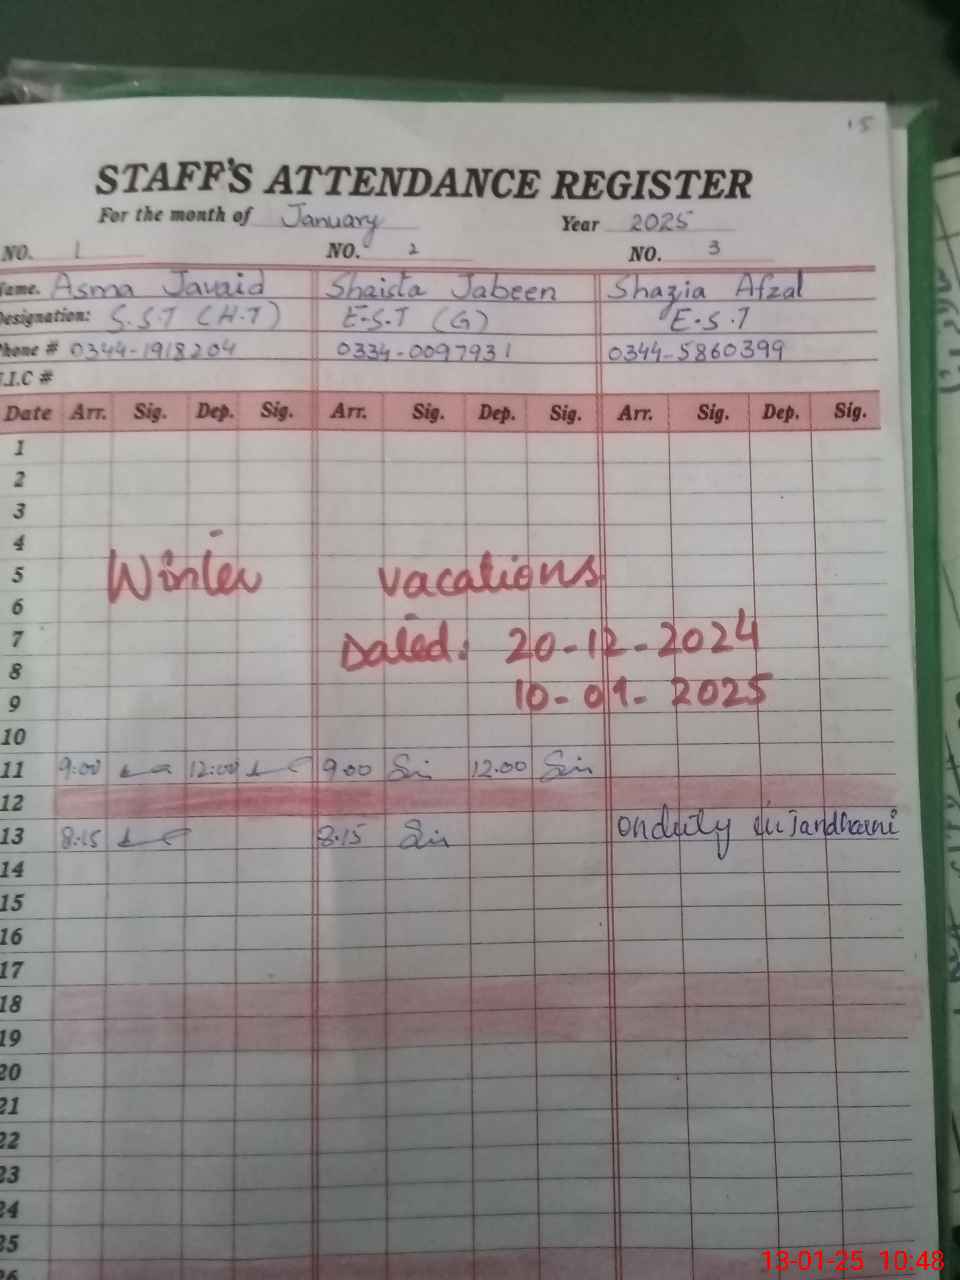 15
STAFF'S ATTENDANCE REGISTER
For the month of January Year 2025
NO. 1 NO. 2 NO. 3
Name. Asma Javaid Shaista Jabeen Shazia Afzal
Designation: S.S.T (H.T) E.S.T (G) E.S.T
Phone # 0344-1918204 0334-0097931 0344-5860399
.I.C #
Date Arr. Sig. Dep. Sig. Arr. Sig. Dep. Sig. Arr. Sig. Dep. Sig.
1
2
3
4
5 Winter vacations
6
7 Dated: 20-12-2024
8
9 10-01-2025
10
11 9:00 12:00 9:00 12:00
12
13 8:15 8:15 onduty in Jandharni
14
15
16
17
18
19
20
21
22
23
24
25
26
13-01-25 10:48